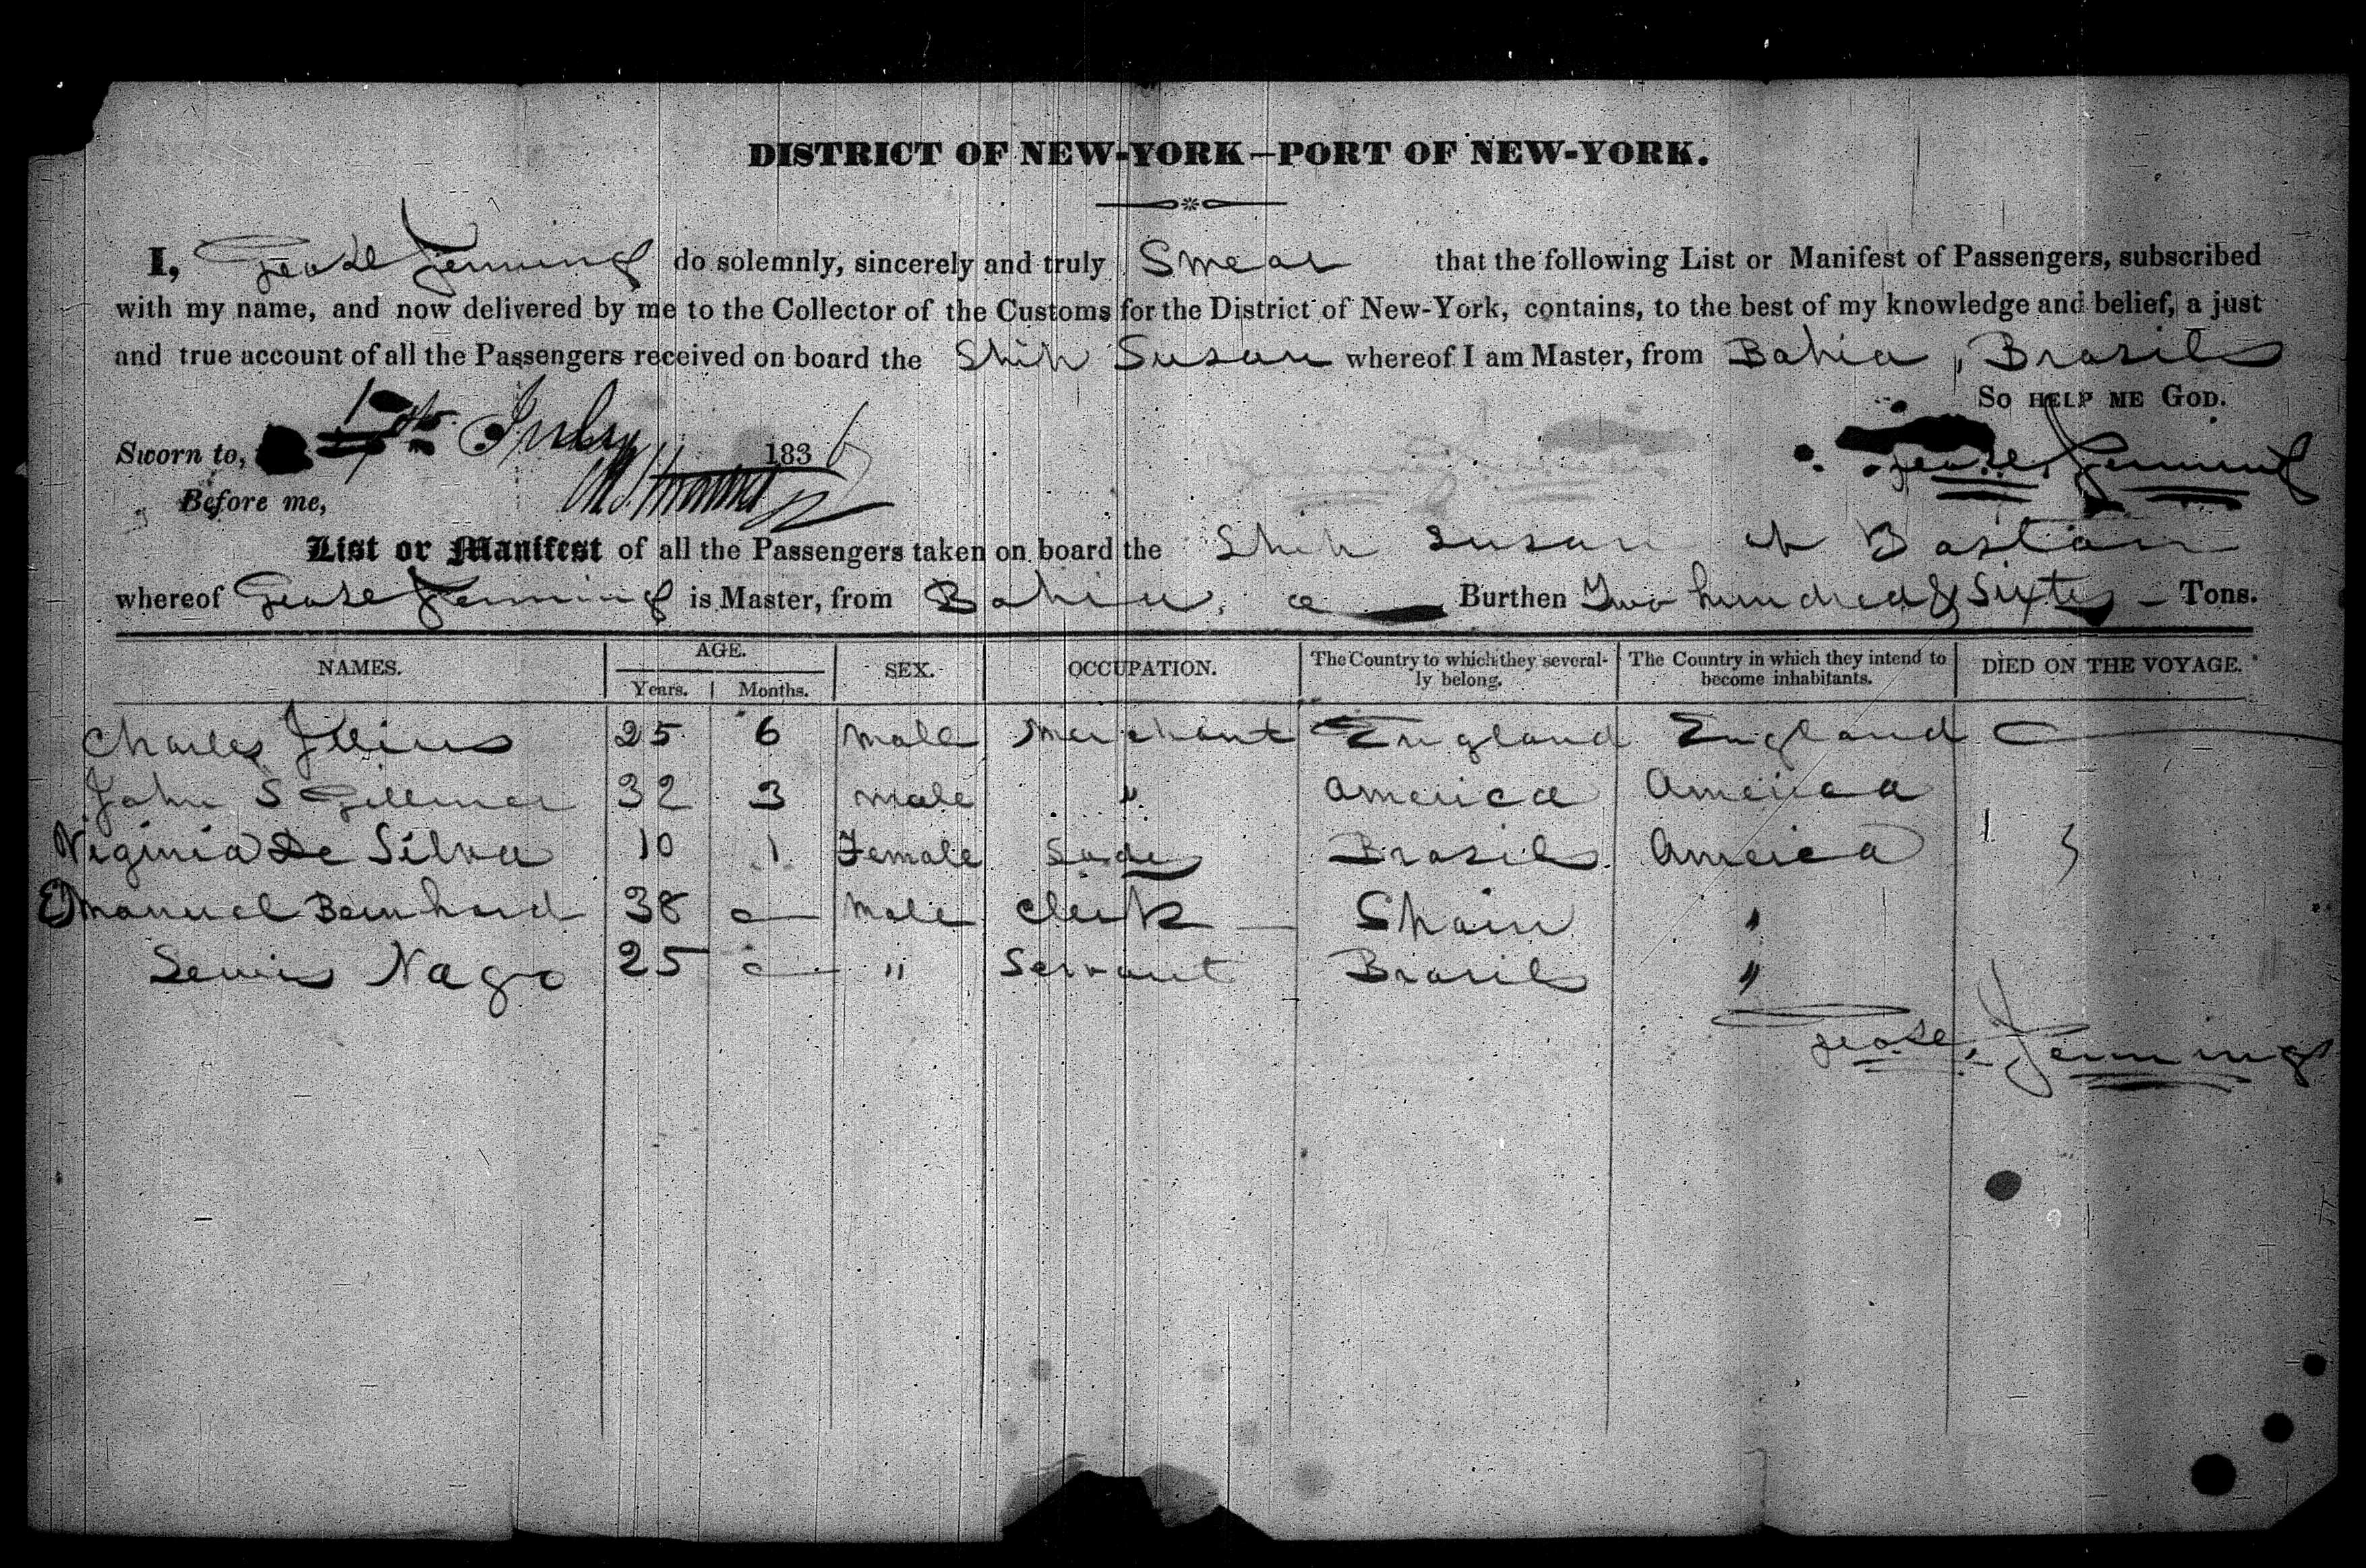 DISTRICT OF NEW-YORK—PORT OF NEW-YORK.
I, George Jennings do solemnly, sincerely and truly Swear that the following List or Manifest of Passengers, subscribed
with my name, and now delivered by me to the Collector of the Customs for the District of New-York, contains, to the best of my knowledge and belief, a just
and true account of all the Passengers received on board the Ship Susan whereof I am Master, from Bahia, Brasils
SO HELP ME GOD.
Sworn to, July 1836 George Jennings
Before me,
List or Manifest of all the Passengers taken on board the Ship Susan of Boston
whereof George Jennings is Master, from Bahia, Burthen Two hundred & Sixty Tons.
NAMES. AGE. SEX. OCCUPATION. The Country to which they several- The Country in which they intend to DIED ON THE VOYAGE.
Years. Months. ly belong. become inhabitants.
Charles 25 6 Male Merchant England England
John S Gillmer 32 3 Male " America America
Virginia De Silva 10 1 Female Brasils America
Emanuel Bernhard 38 Male Clerk Spain "
Lewis Nago 25 " Servant Brasils "
George Jennings